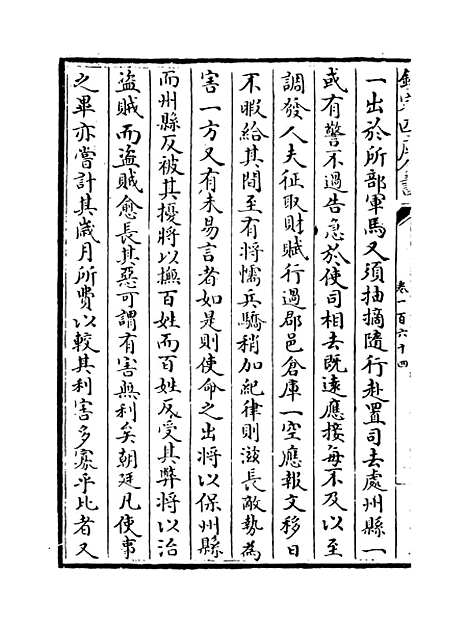 欽定四庫全書
卷一百六十四
一出於所部軍馬又須抽摘隨行赴置司去處州縣一
或有警不過告急於使司相去既遠應接每不及以至
調發人夫征取財賦行過郡邑倉庫一空應報文移日
不暇給其間至有將懦兵驕稍加紀律則滋長敵勢為
害一方又有未易言者如是則使命之出將以保州縣
而州縣反被其擾將以撫百姓而百姓反受其弊將以治
盜賊而盜賊愈長其惡可謂有害無利矣朝廷凡使事
之畢亦嘗計其歲月所費以較其利害多寡乎比者又